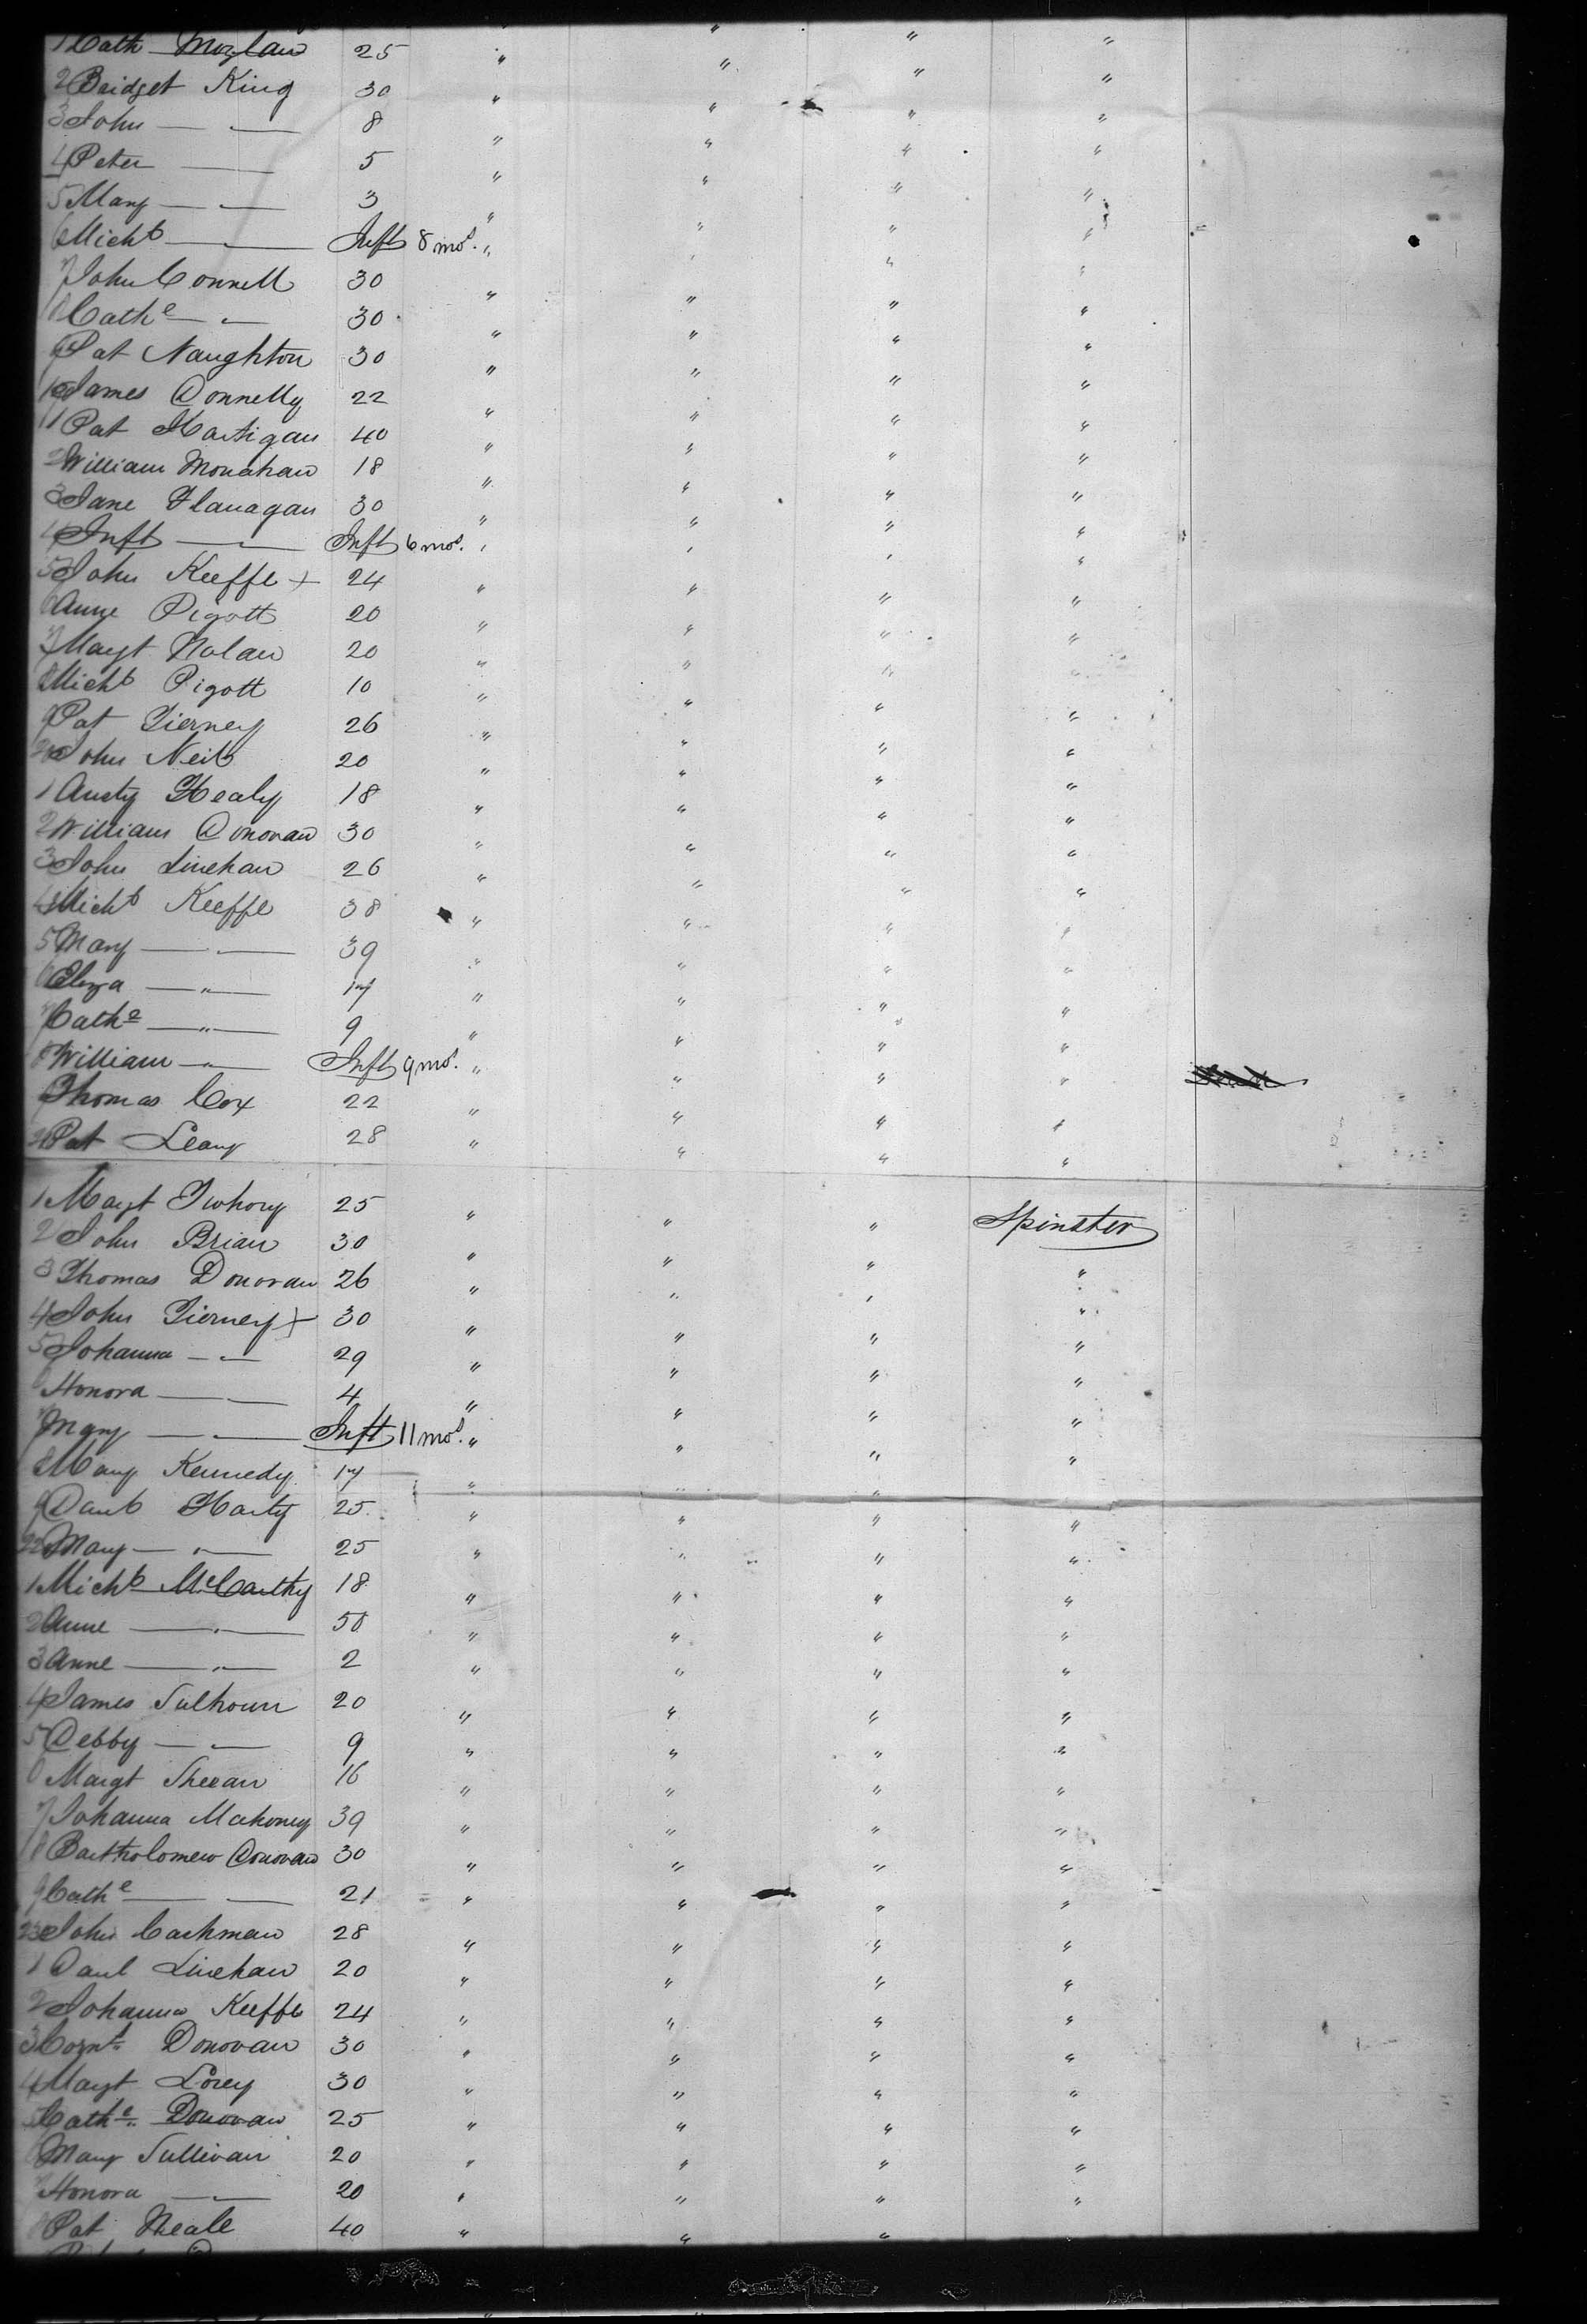 1 Cath Moylan 25 " " " "
2 Bridget King 30 " " " "
3 John — " — 8 " " " "
4 Peter — 5 " " " "
5 Mary — " — 3 " " " "
6 Michl — " — Inft 8 mos. " " " "
7 John Connell 30 " " " "
8 Cathe — " — 30 " " " "
9 Pat Naughton 30 " " " "
10 James Donnelly 22 " " " "
11 Pat Hartigan 40 " " " "
2 William Monahan 18 " " " "
3 Jane Flanagan 30 " " " "
4 Inft — " — Inft 6 mos. " " " "
5 John Keeffe + 24 " " " "
6 Anne Pigott 20 " " " "
7 Margt Nolan 20 " " " "
8 Michl Pigott 10 " " " "
9 Pat Tierney 26 " " " "
20 John Neil 20 " " " "
1 Austy Healy 18 " " " "
2 William Donovan 30 " " " "
3 John Linehan 26 " " " "
4 Michl Keeffe 38 " " " "
5 Mary — " — 39 " " " "
6 Eliza — " — 17 " " " "
7 Cathe — " — 9 " " " "
8 William — " — Inft 9 mos. " " " "
9 Thomas Cox 22 " " " "
Pat Leary 28 " " " "
1 Margt 25 " " " Spinster
2 John Brian 30 " " " "
3 Thomas Donovan 26 " " " "
4 John Tierney + 30 " " " "
5 Johanna — " — 29 " " " "
6 Honora — " — 4 " " " "
7 Mary — " — Inft 11 mos. " " " "
8 Mary Kennedy 17 " " " "
9 Danl Harty 25 " " " "
22 Mary — " — 25 " " " "
1 Michl McCarthy 18 " " " "
2 Anne — " — 50 " " " "
3 Anne — " — 2 " " " "
4 James Sulhoun 20 " " " "
5 Debby — " — 9 " " " "
6 Margt Sheean 16 " " " "
7 Johanna Mahoney 39 " " " "
8 Bartholomew Donovan 30 " " " "
9 Cathe — — 21 " " " "
23 John Cashman 28 " " " "
1 Danl Linehan 20 " " " "
2 Johanna Keeffe 24 " " " "
3 Cornls Donovan 30 " " " "
4 Margt Lorey 30 " " " "
5 Cathe Donovan 25 " " " "
6 Mary Sullivan 20 " " " "
7 Honora — " — 20 " " " "
8 Pat Neale 40 " " "